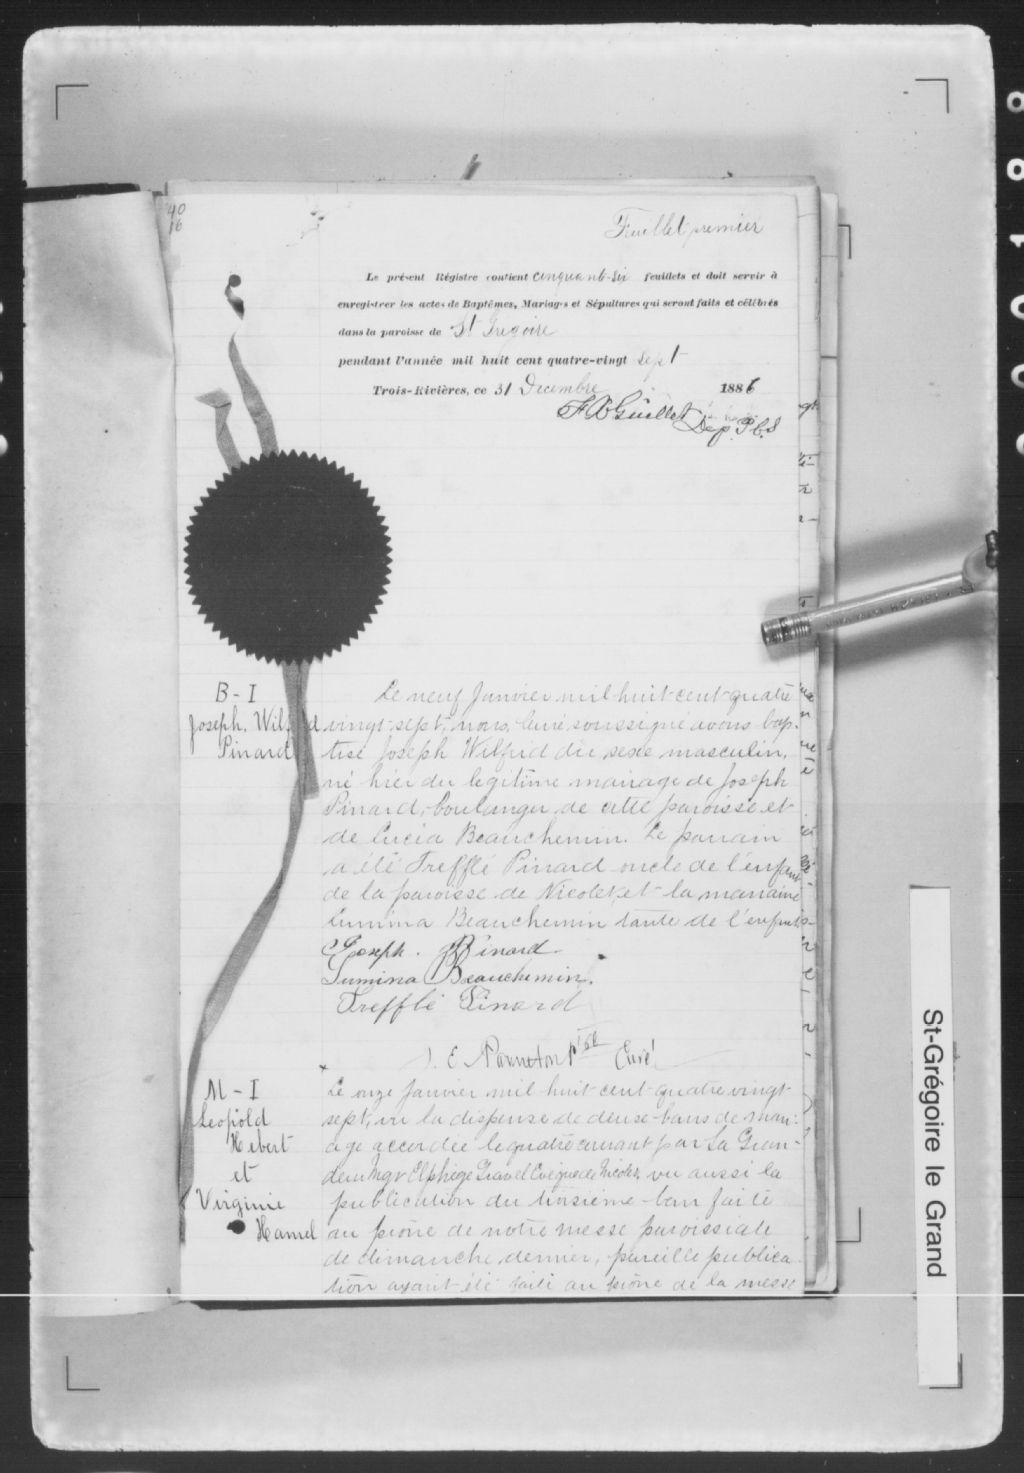 40
16
Feuillet premier
Le présent Régistre contient cinquante-six feuillets et doit servir à
enregistrer les actes de Baptêmes, Mariages et Sépultures qui seront faits et célébrés
dans la paroisse de St Grégoire
pendant l'année mil huit cent quatre-vingt sept
Trois-Rivières, ce 31 Decembre 1886
F X Guillet Dep. P.C.S
B - I
Joseph, Wilfrid
Pinard
Le neuf Janvier mil huit cent quatre
vingt-sept, nous, curé soussigné avons bap-
tisé Joseph Wilfrid du sexe masculin,
né hier du legitime mariage de Joseph
Pinard, boulanger de cette paroisse et
de Lucia Beauchemin. Le parrain
a été Trefflé Pinard oncle de l'enfant
de la paroisse de Nicolet, et la marraine
Lumina Beauchemin tante de l'enfant
Joseph. Pinard
Lumina Beauchemin.
Trefflé Pinard
J. E. Panneton Ptre Curé
M - I
Leopold
Hebert
et
Virginie
Hamel
Le onze Janvier mil huit cent quatre vingt
sept, vu la dispense de deux bans de mari-
age accordée le quatre courant par Sa Gran-
deur Mgr Elphège Gravel Evêque de Nicolet, vu aussi la
publication du troisième ban faite
au prône de notre messe paroissiale
de dimanche dernier, pareille publica-
tion ayant été faite au prône de la messe
St-Grégoire le Grand